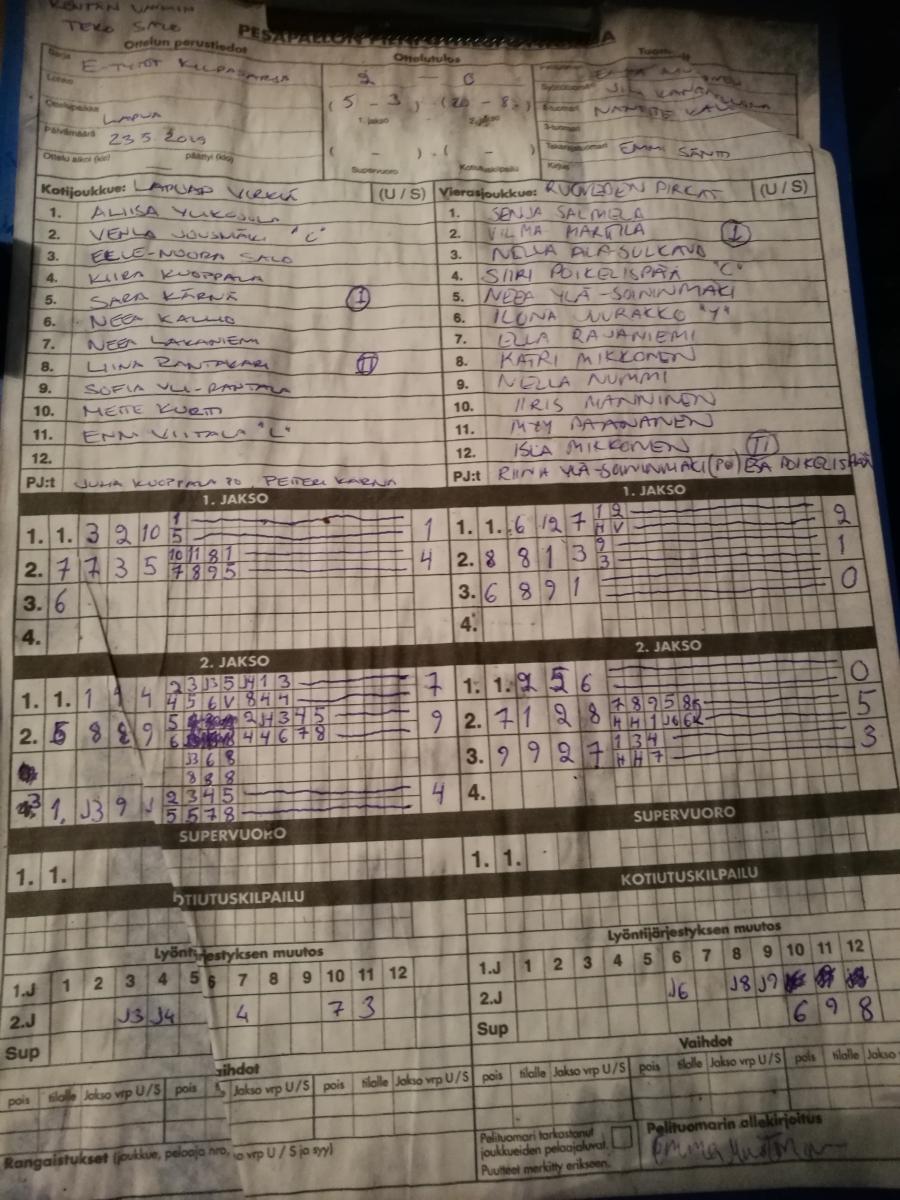 TERO SALO
Ottelun perustiedot
Ottelutulos
E-TYTÖT KILPASARJA
2 - 0
(5 - 3) (20 - 8)
1. jakso
Ottelupaikka LAPUA
Päivämäärä 23.5.2019
Ottelu alkoi (klo) päättyi (klo)
( - ) ( - )
Supervuoro Kotiutuskilpailu
EMMI SÄNTI
Kotijoukkue: LAPUAN VIRKIÄ (U / S)
1. ALIISA
2. VENLA JOUSMÄKI "C"
3. EELE-NOORA SALO
4. KIIRA KUOPPALA
5. SARA KÄRNÄ I
6. NEEA KALLIO
7. NEEA LAKANIEMI
8. LIINA RANTAKARI II
9. SOFIA YLI-RANTALA
10. METTE KURTTI
11. ENNI VIITALA "L"
12.
PJ:t JUHA KUOPPALA PJ, PETTERI KÄRNÄ
Vierasjoukkue: RUOVEDEN PIRKAT (U / S)
1. SENJA SALMELA
2. VILMA MARTTILA I
3. NELLA ALA-SULKAVA
4. SIIRI POIKELISPÄÄ "C"
5. NEEA YLÄ-SOININMÄKI
6. ILONA JUURAKKO "Y"
7. ELLA RAJANIEMI
8. KATRI MIKKONEN
9. NELLA NUMMI
10. IIRIS MANNINEN
11. MYY PAANANEN
12. ISLA MIKKONEN II
PJ:t RIINA YLÄ-SOININMÄKI (PJ) ESA POIKELISPÄÄ
1. JAKSO
1. 1. 3 9 10 1 1
5
2. 7 7 3 5 10 11 8 1 4
7 8 9 5
3. 6
4.
1. JAKSO
1. 1. 6 12 7 1 2 2
H V
2. 8 8 1 3 9 1
3
3. 6 8 9 1 0
4.
2. JAKSO
1. 1. 1 1 4 2 3 J3 5 J4 1 3 7
4 5 6 V 8 4 4
2. 5 8 8 9 5 2 J4 3 4 5 9
6 4 4 6 7 8
J3 6 8
8 8 8
3 1. J3 9 J 2 3 4 5 4
5 5 7 8
2. JAKSO
1. 1. 2 5 6 0
2. 7 1 2 8 7 8 9 5 8 5
3. 9 9 2 7 1 3 4 3
H H 7
4.
SUPERVUORO
1. 1.
SUPERVUORO
1. 1.
OTIUTUSKILPAILU
KOTIUTUSKILPAILU
Lyöntijärjestyksen muutos
1.J 1 2 3 4 5 6 7 8 9 10 11 12
2.J J3 J4 4 7 3
Sup
Lyöntijärjestyksen muutos
1.J 1 2 3 4 5 6 7 8 9 10 11 12
2.J J6 J8 J9
Sup 6 9 8
aihdot
pois tilalle Jakso vrp U / S pois Jakso vrp U / S pois tilalle Jakso vrp U / S
Vaihdot
pois tilalle Jakso vrp U / S pois tilalle Jakso vrp U / S pois tilalle Jakso
Rangaistukset (joukkue, pelaaja nro, vrp U / S ja syy)
Pelituomari tarkastanut
joukkueiden pelaajaluvat.
Puutteet merkitty erikseen.
Pelituomarin allekirjoitus